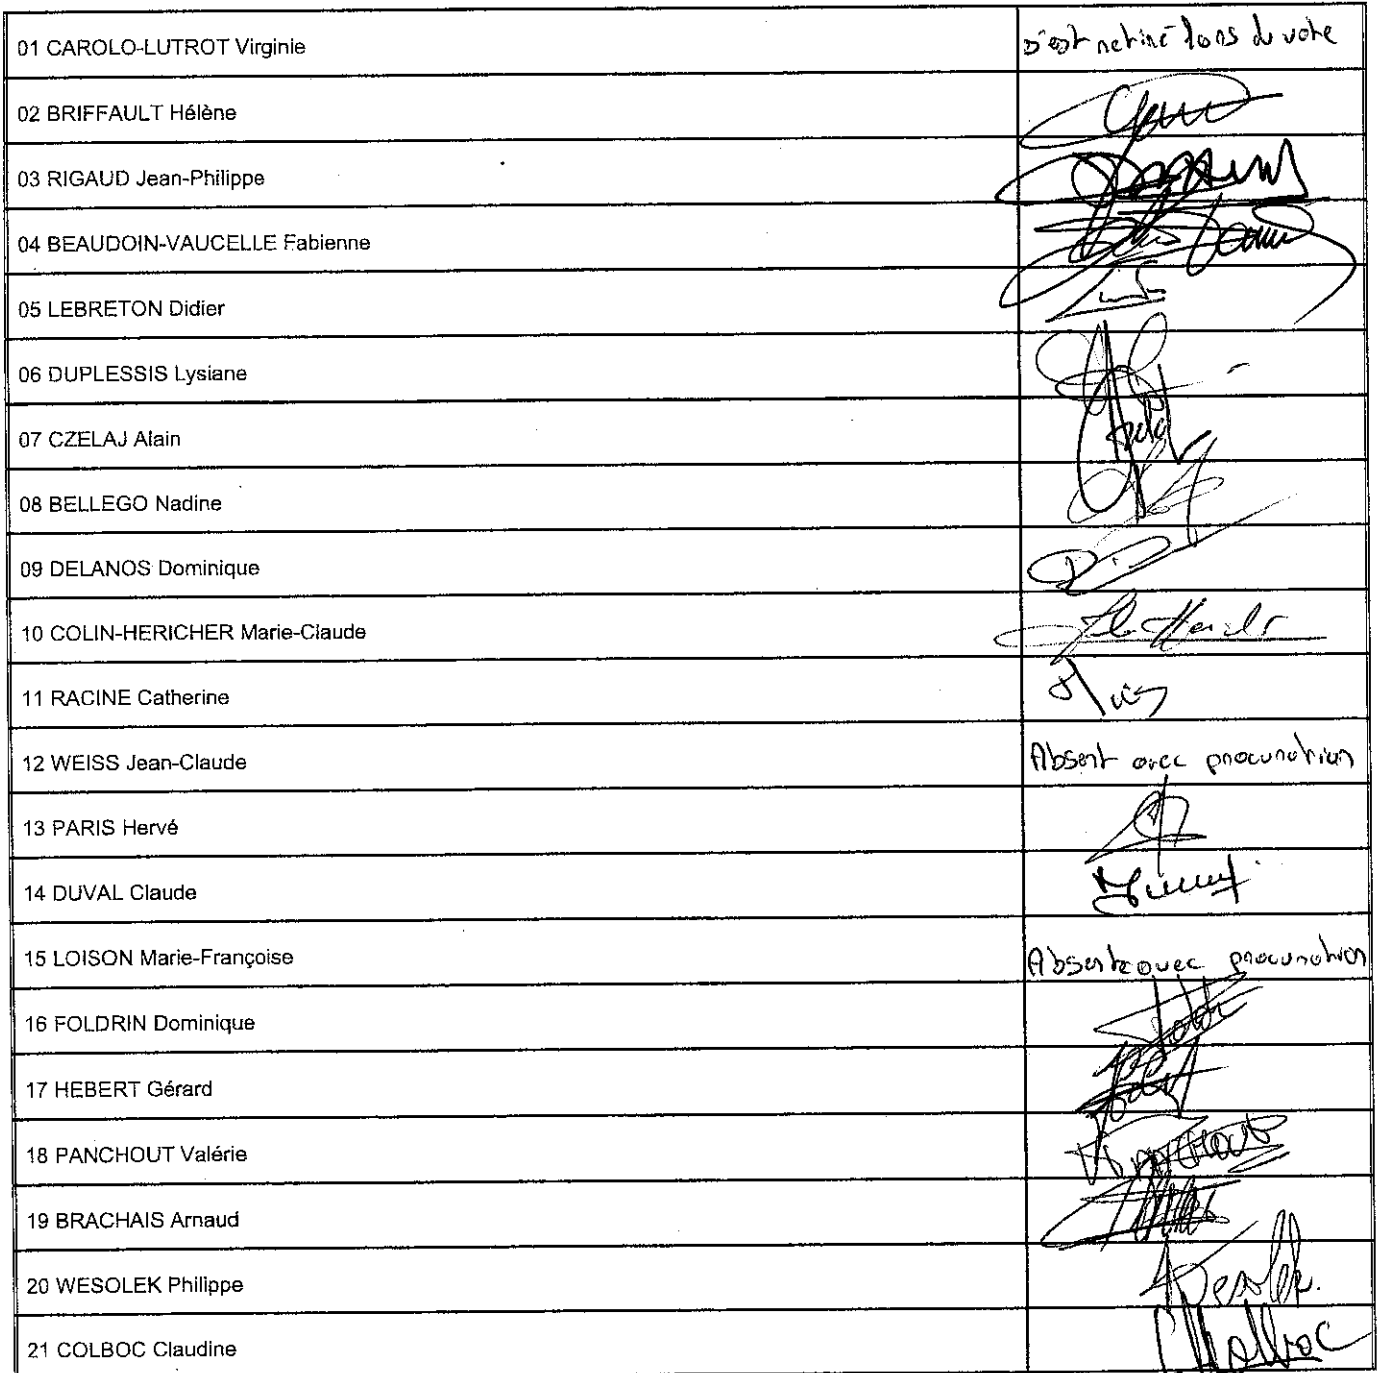 01 CAROLO-LUTROT Virginie s'est retiré lors du vote
02 BRIFFAULT Hélène
03 RIGAUD Jean-Philippe
04 BEAUDOIN-VAUCELLE Fabienne
05 LEBRETON Didier
06 DUPLESSIS Lysiane
07 CZELAJ Alain
08 BELLEGO Nadine
09 DELANOS Dominique
10 COLIN-HERICHER Marie-Claude
11 RACINE Catherine
12 WEISS Jean-Claude Absent avec procuration
13 PARIS Hervé
14 DUVAL Claude
15 LOISON Marie-Françoise Absente avec procuration
16 FOLDRIN Dominique
17 HEBERT Gérard
18 PANCHOUT Valérie
19 BRACHAIS Arnaud
20 WESOLEK Philippe Wesolek.
21 COLBOC Claudine Colboc